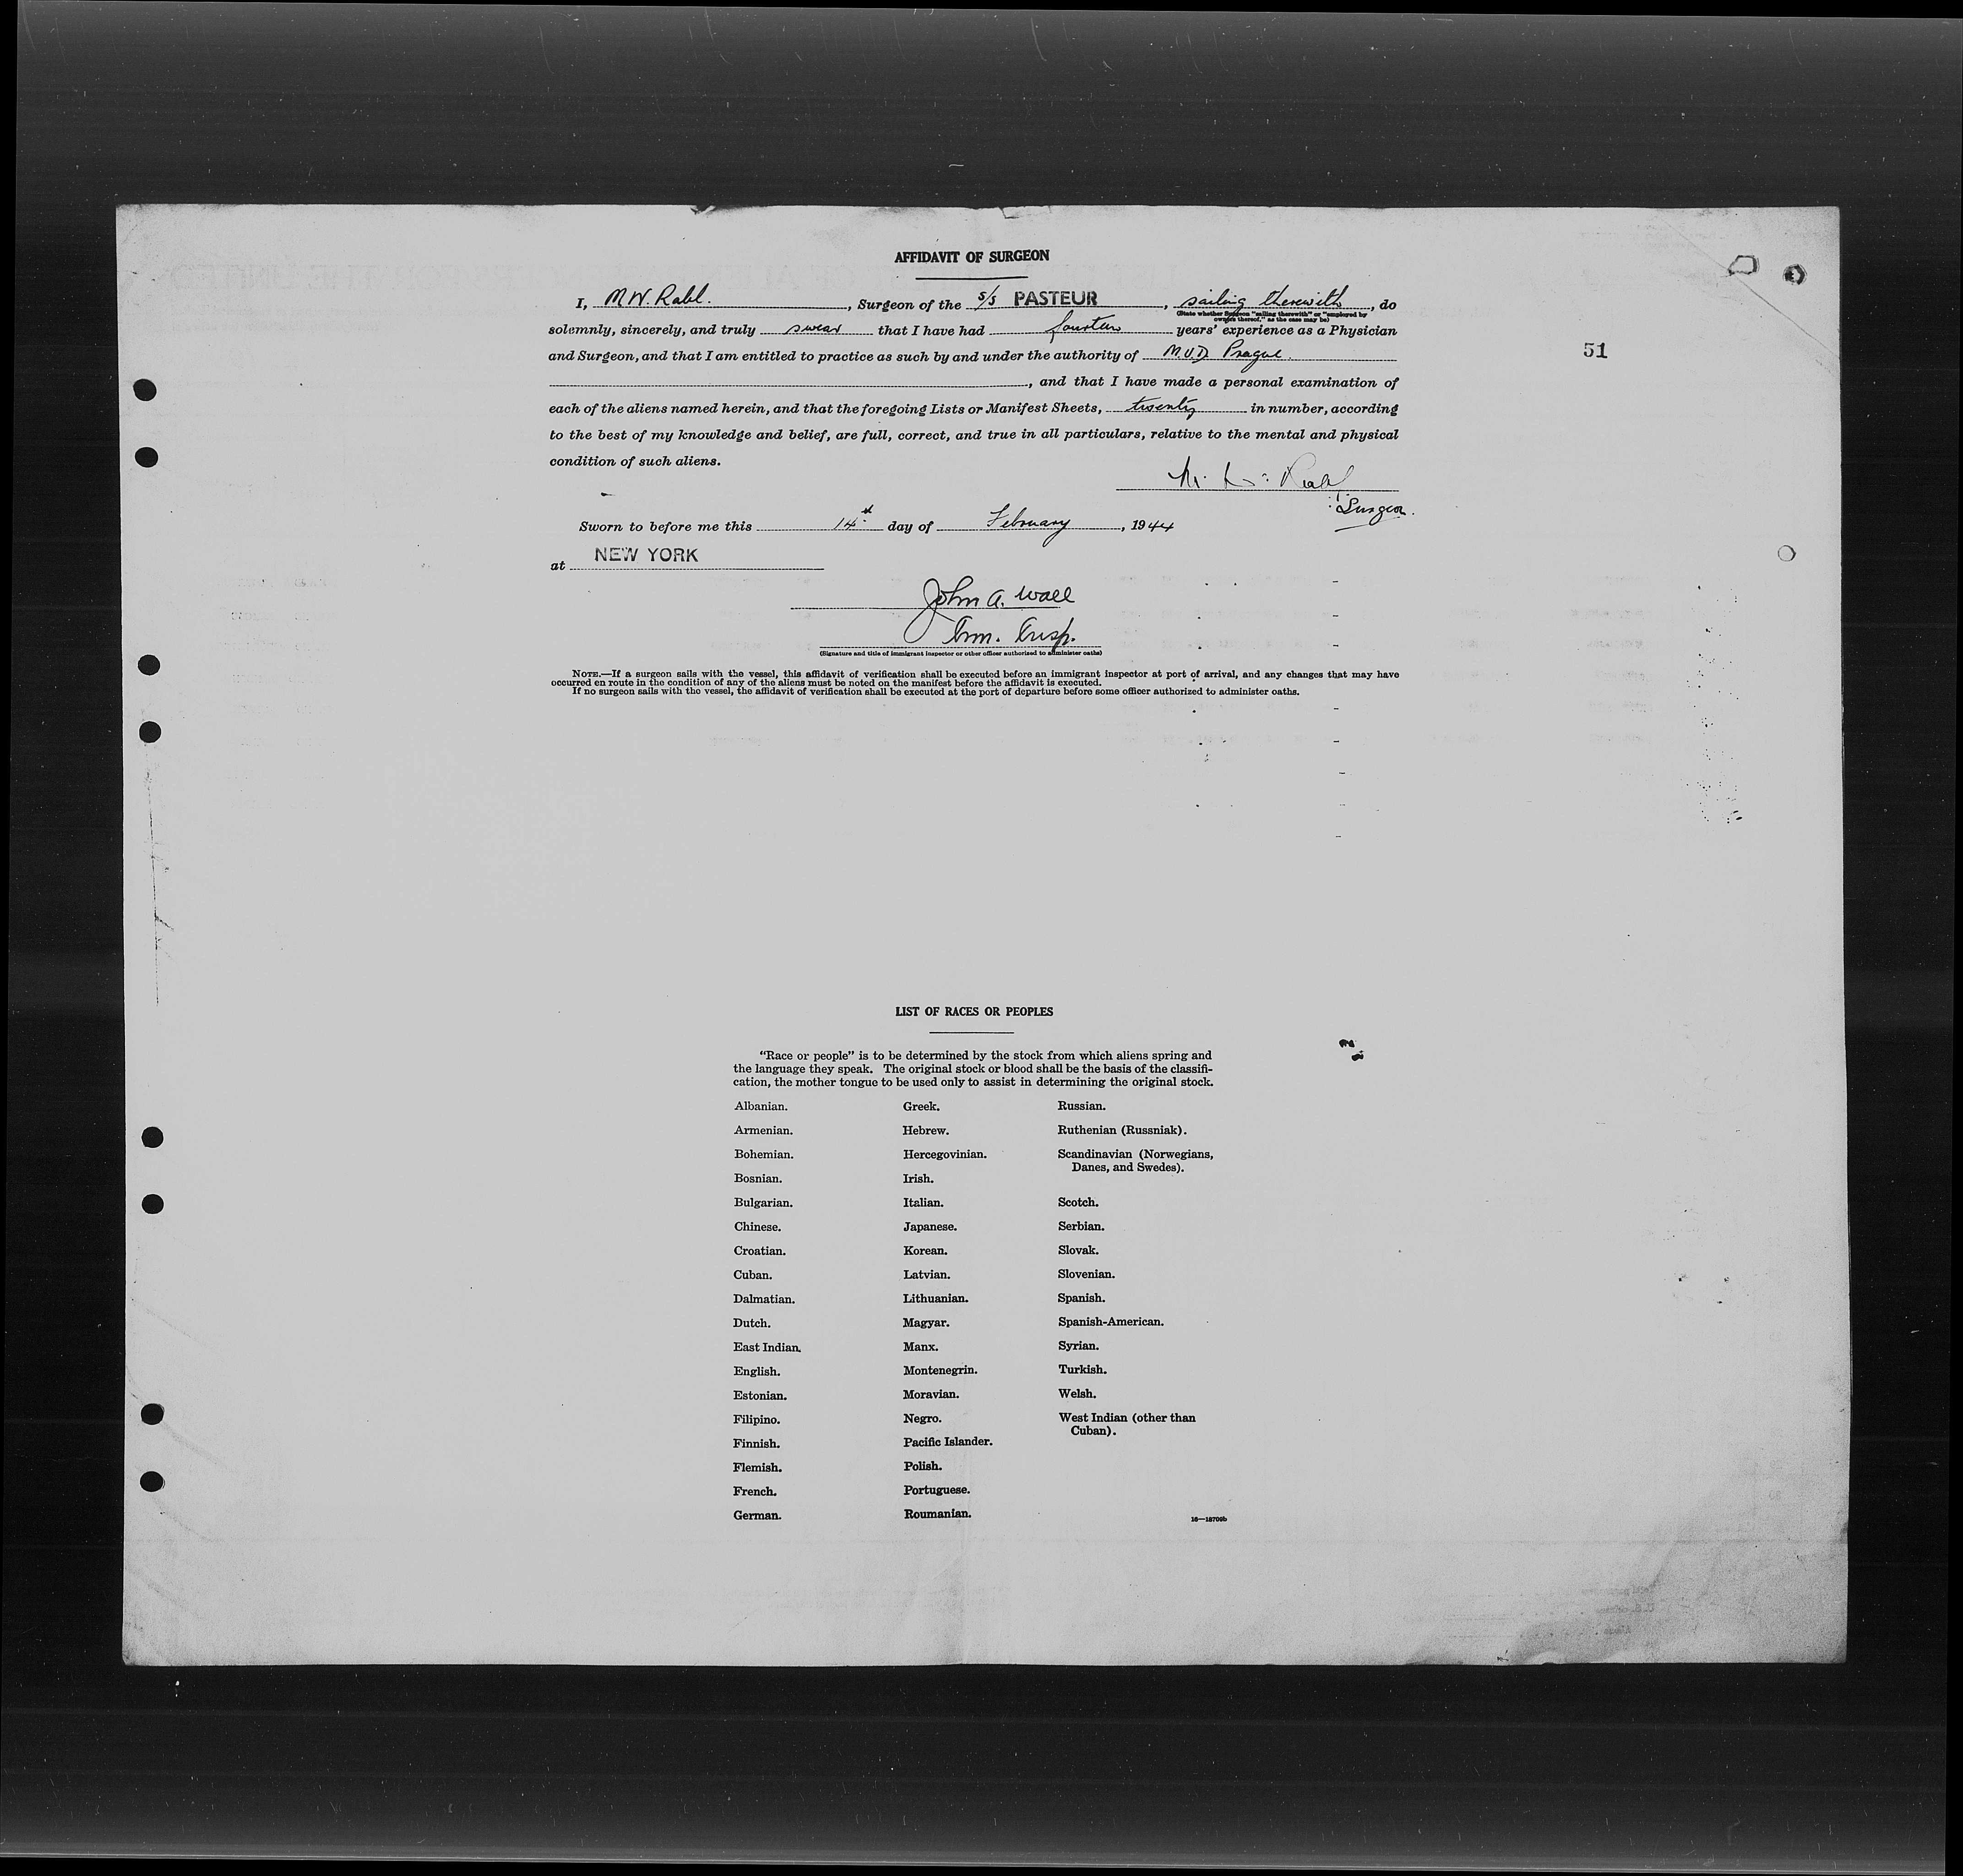 AFFIDAVIT OF SURGEON
I, M.W. Rabl., Surgeon of the S/S PASTEUR, sailing therewith, do
(State whether Surgeon "sailing therewith" or "employed by
owners thereof," as the case may be)
solemnly, sincerely, and truly swear that I have had fourteen years' experience as a Physician
and Surgeon, and that I am entitled to practice as such by and under the authority of M.U.D. Prague.
51
, and that I have made a personal examination of
each of the aliens named herein, and that the foregoing Lists or Manifest Sheets, twenty in number, according
to the best of my knowledge and belief, are full, correct, and true in all particulars, relative to the mental and physical
condition of such aliens.
M. W. Rabl
Surgeon.
Sworn to before me this 14th day of February, 1944
at NEW YORK
John A. Wall
Imm. Insp.
(Signature and title of immigrant inspector or other officer authorized to administer oaths)
NOTE.—If a surgeon sails with the vessel, this affidavit of verification shall be executed before an immigrant inspector at port of arrival, and any changes that may have
occurred en route in the condition of any of the aliens must be noted on the manifest before the affidavit is executed.
If no surgeon sails with the vessel, the affidavit of verification shall be executed at the port of departure before some officer authorized to administer oaths.
LIST OF RACES OR PEOPLES
"Race or people" is to be determined by the stock from which aliens spring and
the language they speak. The original stock or blood shall be the basis of the classifi-
cation, the mother tongue to be used only to assist in determining the original stock.
Albanian.
Armenian.
Bohemian.
Bosnian.
Bulgarian.
Chinese.
Croatian.
Cuban.
Dalmatian.
Dutch.
East Indian.
English.
Estonian.
Filipino.
Finnish.
Flemish.
French.
German.
Greek.
Hebrew.
Hercegovinian.
Irish.
Italian.
Japanese.
Korean.
Latvian.
Lithuanian.
Magyar.
Manx.
Montenegrin.
Moravian.
Negro.
Pacific Islander.
Polish.
Portuguese.
Roumanian.
Russian.
Ruthenian (Russniak).
Scandinavian (Norwegians,
Danes, and Swedes).
Scotch.
Serbian.
Slovak.
Slovenian.
Spanish.
Spanish-American.
Syrian.
Turkish.
Welsh.
West Indian (other than
Cuban).
16—18709b